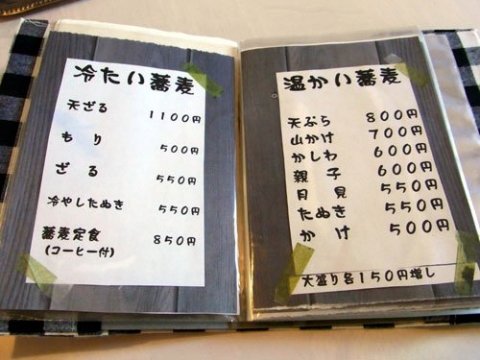 冷たい蕎麦
天ざる 1100円
もり 500円
ざる 550円
冷やしたぬき 550円
蕎麦定食 850円
(コーヒー付)
温かい蕎麦
天ぷら 800円
山かけ 700円
かしわ 600円
親子 600円
月見 550円
たぬき 550円
かけ 500円
大盛り各150円増し